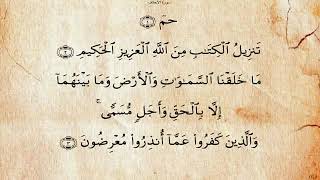 سورة الأحقاف
حمٓ ١
تَنزِيلُ ٱلْكِتَـٰبِ مِنَ ٱللَّهِ ٱلْعَزِيزِ ٱلْحَكِيمِ ٢
مَا خَلَقْنَا ٱلسَّمَـٰوَٰتِ وَٱلْأَرْضَ وَمَا بَيْنَهُمَآ
إِلَّا بِٱلْحَقِّ وَأَجَلٍ مُّسَمًّى ۚ
وَٱلَّذِينَ كَفَرُوا۟ عَمَّآ أُنذِرُوا۟ مُعْرِضُونَ ٣